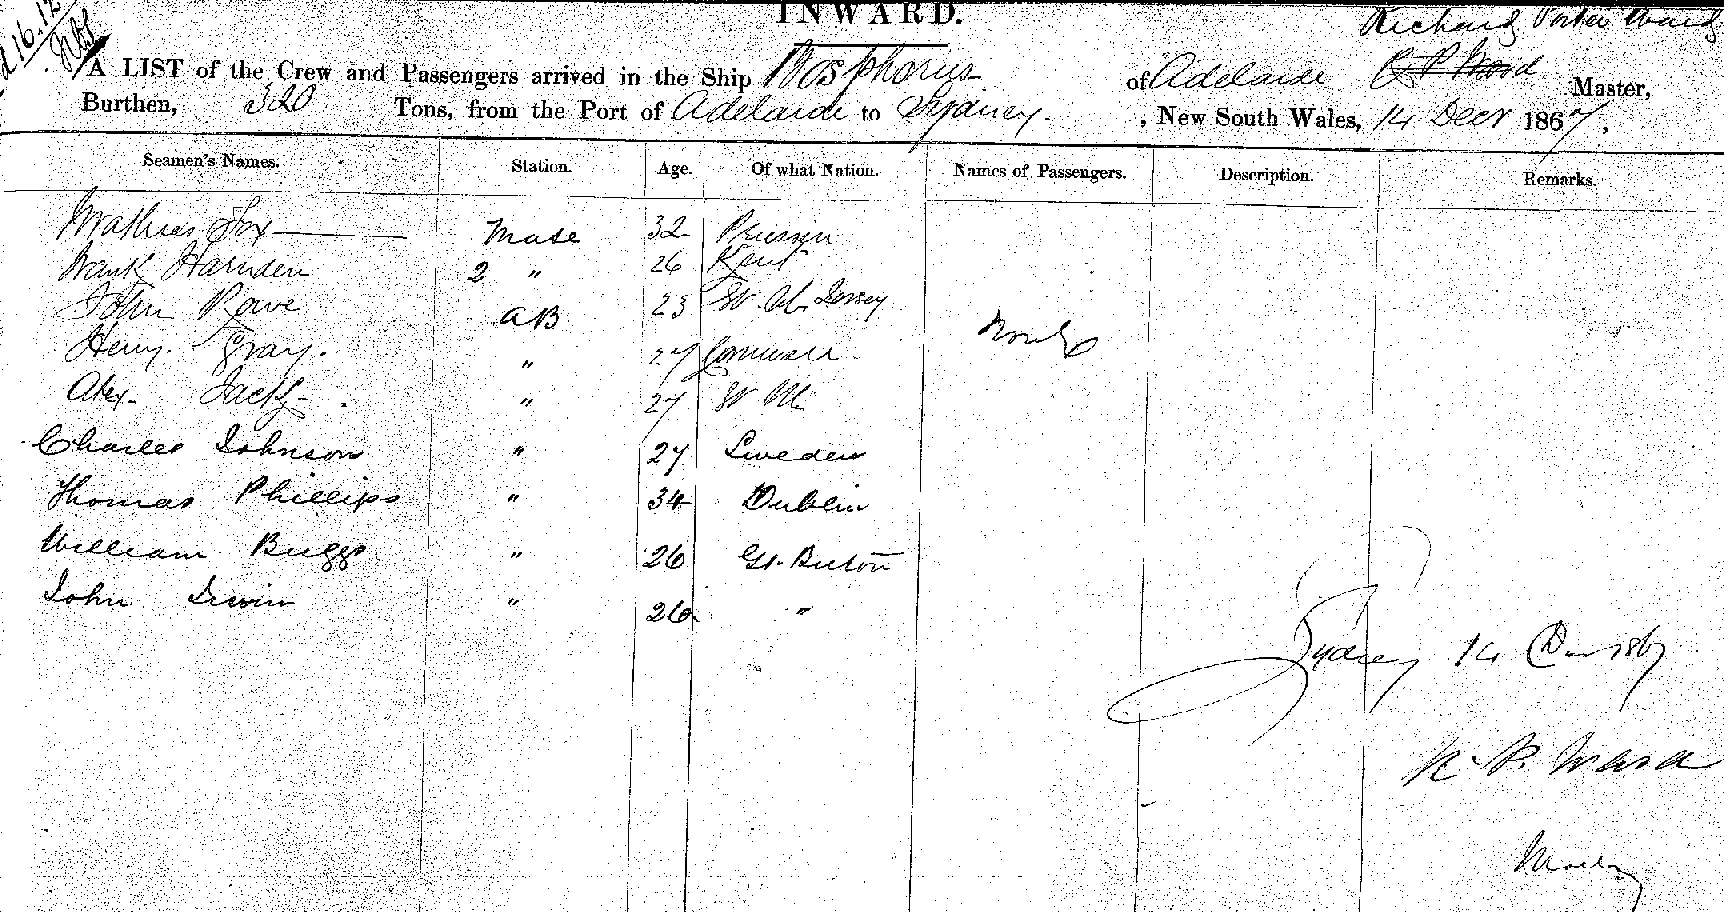 INWARD.
Richard Porter Ward
A LIST of the Crew and Passengers arrived in the Ship Bosphorus of Adelaide R P Ward Master,
Burthen, 320 Tons, from the Port of Adelaide to Sydney. , New South Wales, 14 Decr 1867.
Seamen's Names. Station. Age. Of what Nation. Names of Passengers. Description. Remarks.
Mathias Fox Mate 32 Prussia
Frank Harnden 2 " 26 Kent
John Rowe AB 23 Jersey
Henry Gray. " 27 Cornwall
Alex Jack " 27
Charles Johnson " 27 Sweden
Thomas Phillips " 34 Dublin
William Buggs " 26 Gt. Britain
John Irwin " 26 "
Sydney 14 Decr 1867
R. P. Ward
Master